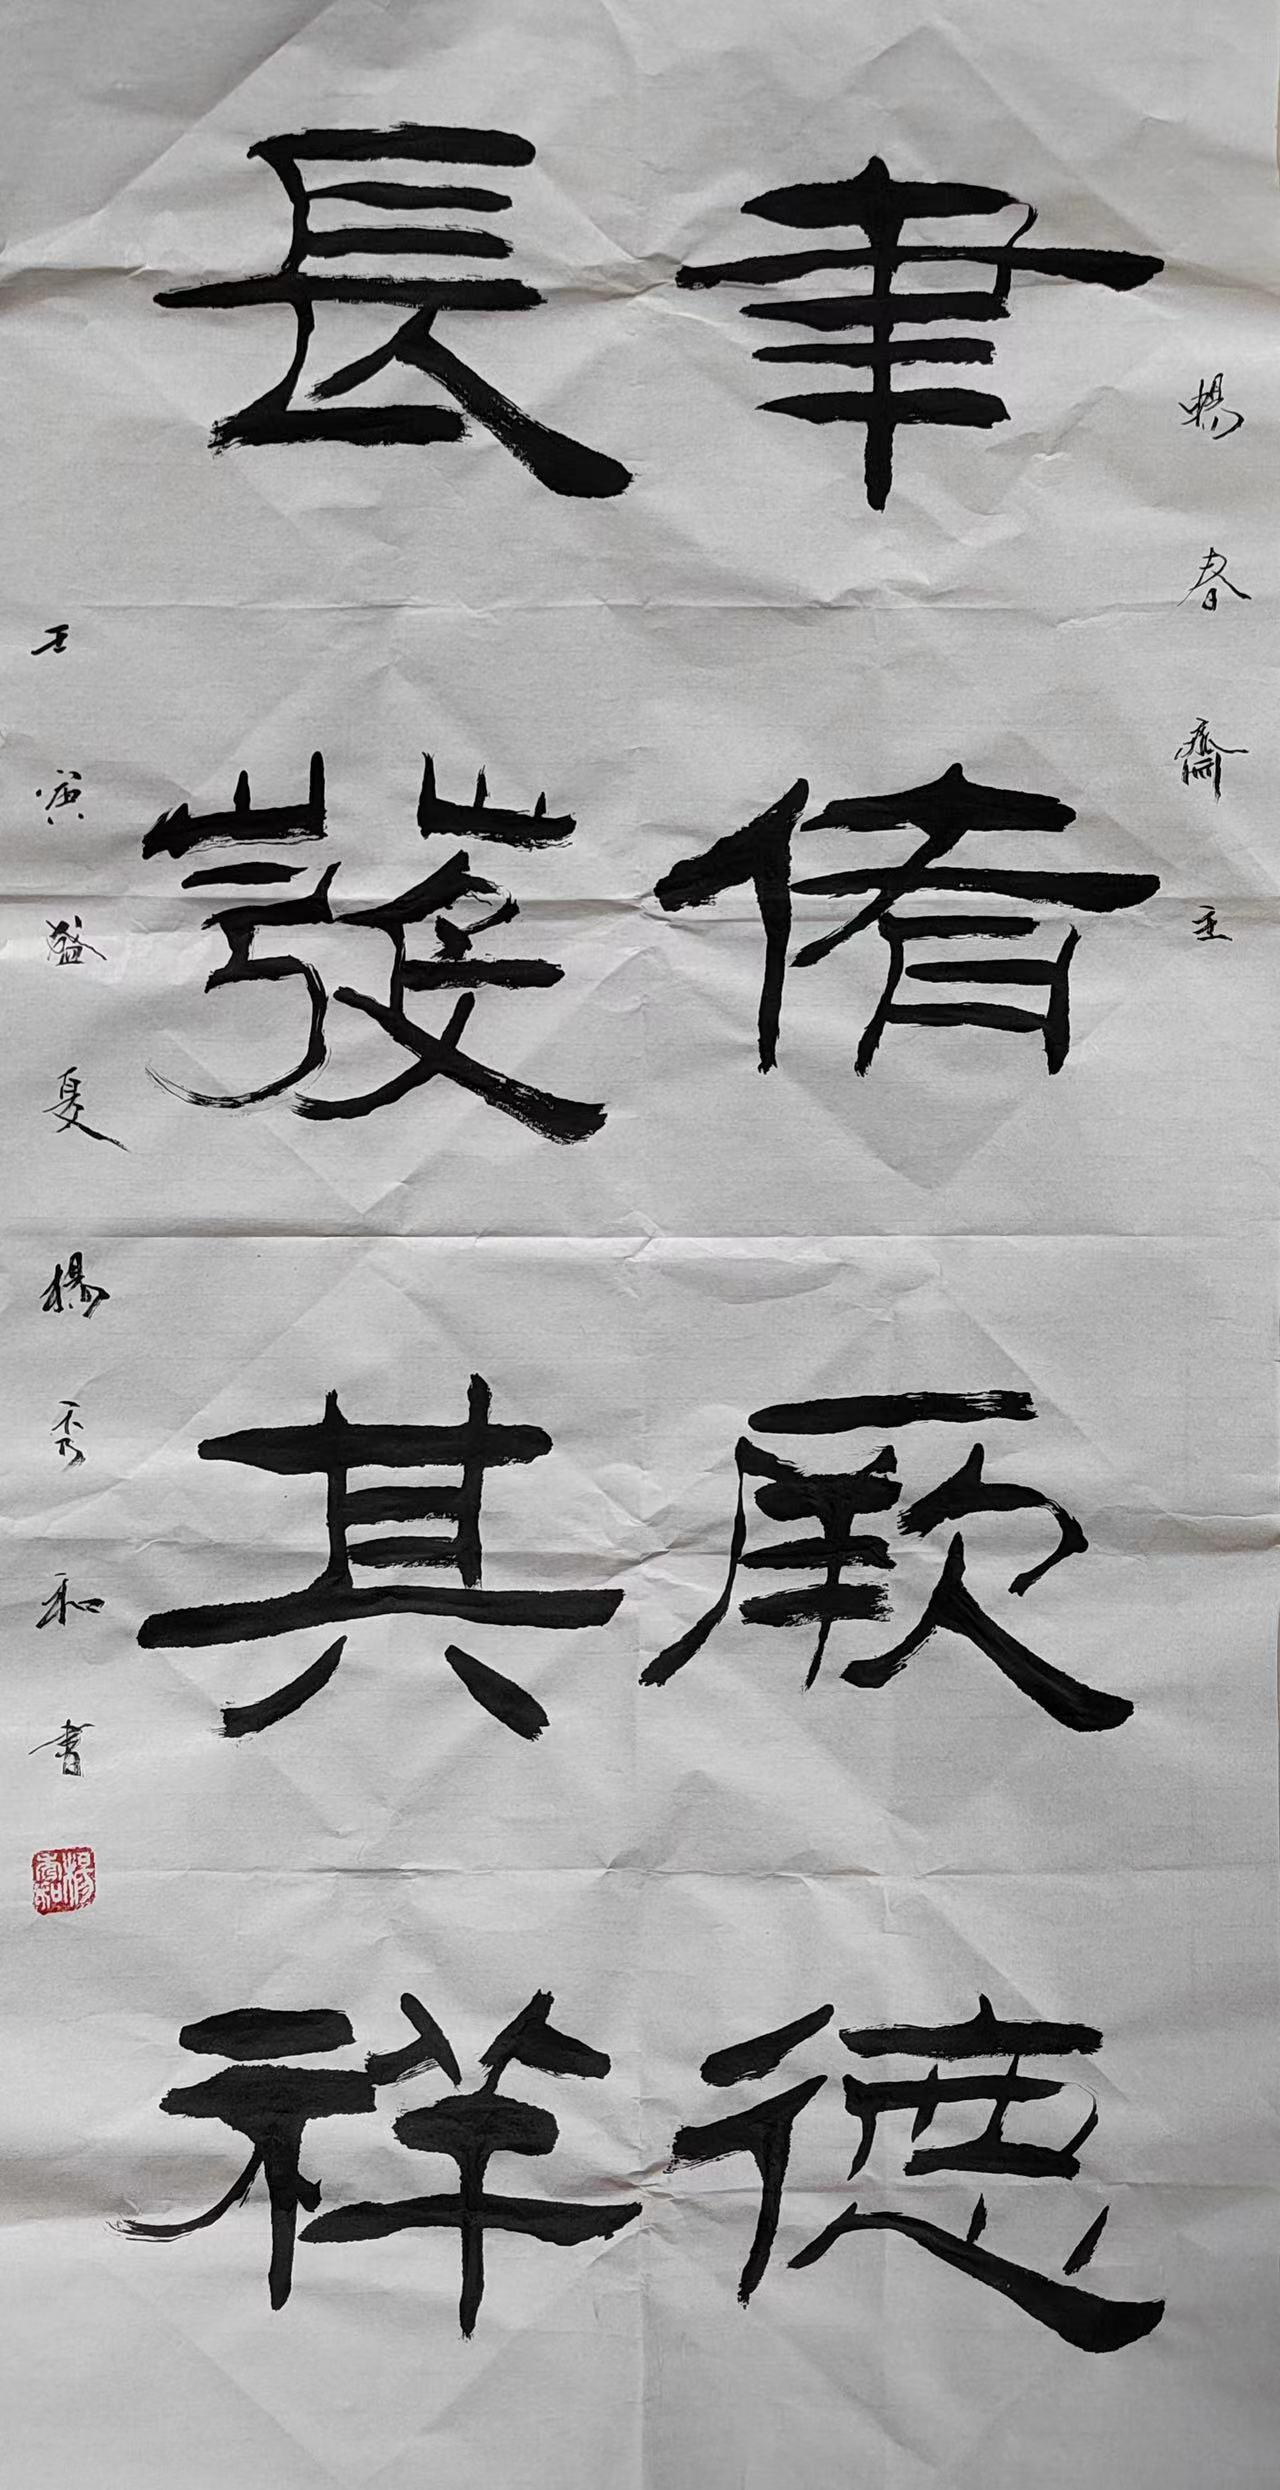 暢春齋主
聿脩厥德
長發其祥
壬寅盛夏楊秀和書
楊秀和